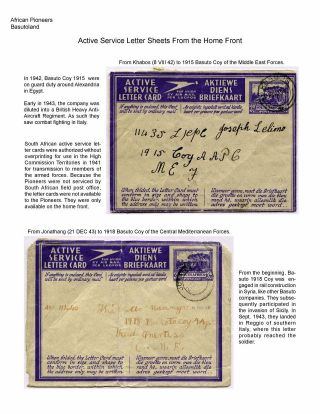 African Pioneers
Basutoland
Active Service Letter Sheets From the Home Front
From Khabos (8 VIII 42) to 1915 Basuto Coy of the Middle East Forces.
In 1942, Basuto Coy 1915 were
on guard duty around Alexandria
in Egypt.
Early in 1943, the company was
diluted into a British Heavy Anti-
Aircraft Regiment. As such they
saw combat fighting in Italy.
South African active service let-
ter cards were authorized without
overprinting for use in the High
Commission Territories in 1941
for transmission to members of
the armed forces. Because the
Pioneers were not serviced by
South African field post office,
the letter cards were not available
to the Pioneers. They were only
available on the home front.
ACTIVE
SERVICE
LETTER CARD
AKTIEWE
DIENS
BRIEFKAART
If anything is enclosed, this
card will be sent by ordinary mail.
Joseph
1915 Coy A A P C
M E
When folded, the Letter Card must
conform in size and shape to
the blue border, within which
the address only may be written.
Wanneer gevou, moet die Briefkaart
die grootte en vorm hê van die blou
raam, waarin alleenlik die
adres geskryf moet word.
From Jonathang (21 DEC 43) to 1918 Basuto Coy of the Central Mediterranean Forces.
ACTIVE
SERVICE
LETTER CARD
AKTIEWE
DIENS
BRIEFKAART
1918
When folded, the Letter Card must
conform in size and shape to
the blue border, within which
the address only may be written.
Wanneer gevou, moet die Briefkaart
die grootte en vorm hê van die blou
raam, waarin alleenlik die
adres geskryf moet word.
From the beginning, Ba-
suto 1918 Coy was en-
gaged in rail construction
in Syria, like other Basuto
companies. They subse-
quently participated in
the invasion of Sicily. In
Sept. 1943, they landed
in Reggio of southern
Italy, where this letter
probably reached the
soldier.